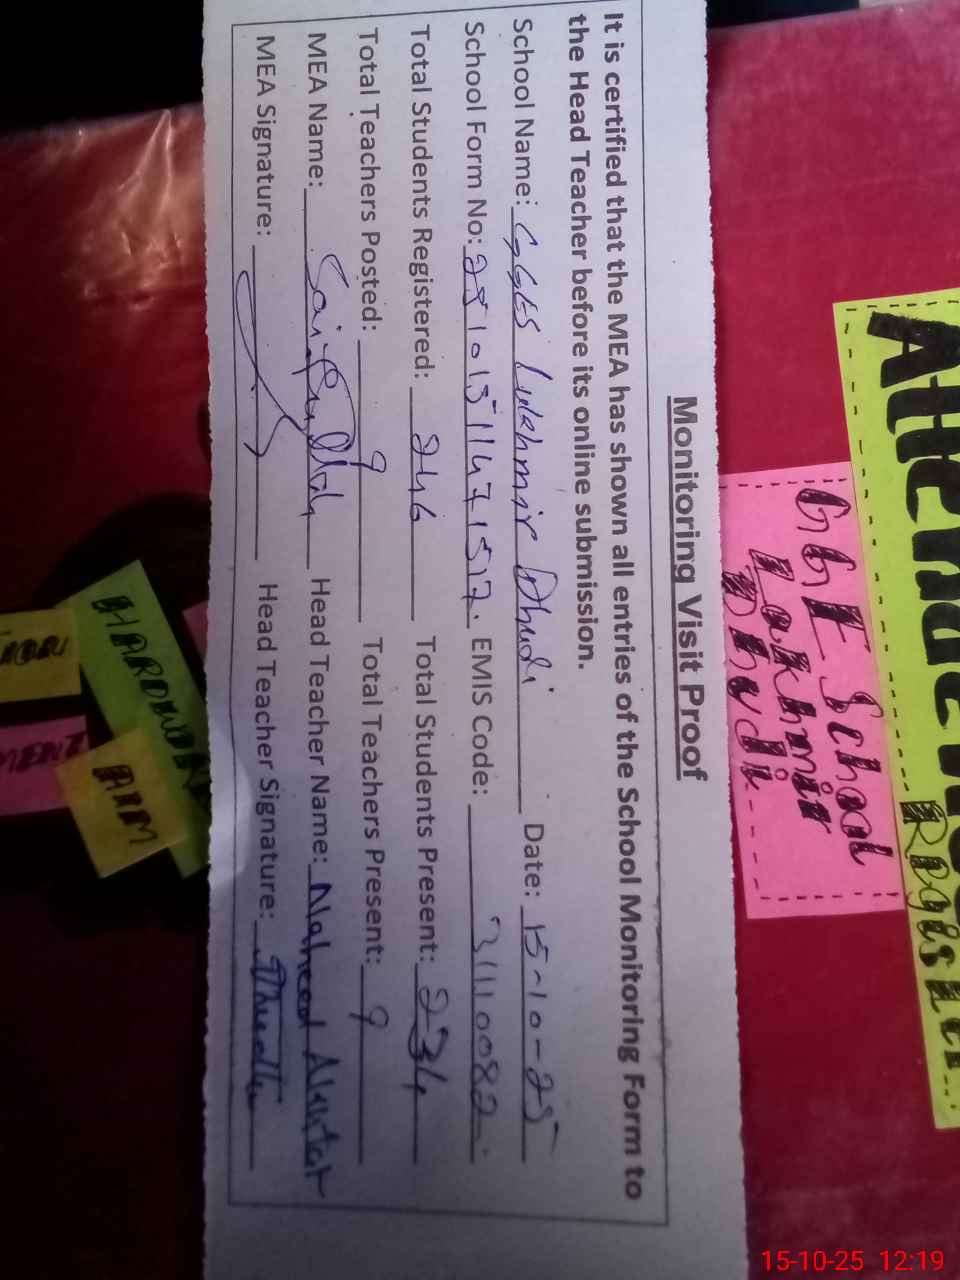 Monitoring Visit Proof
It is certified that the MEA has shown all entries of the School Monitoring Form to
the Head Teacher before its online submission.
School Name: GGES Lukhmir Dhudi Date: 15-10-25
School Form No: 28101511471517. EMIS Code: 31110082
Total Students Registered: 246 Total Students Present: 234
Total Teachers Posted: 9 Total Teachers Present: 9
MEA Name: Saifullah Head Teacher Name: Naheed Akhtar
MEA Signature: Head Teacher Signature:
Attendance
Register
GGE School
Lakhmir
Dhudi
HARDWORK
AIM
15-10-25 12:19